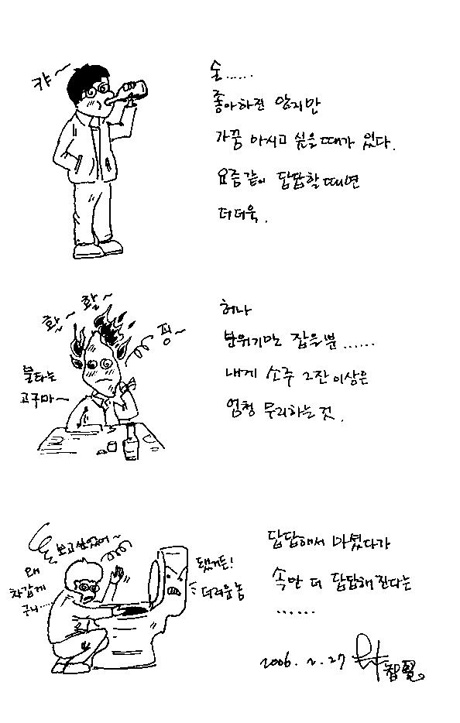 캬~
술......
좋아하진 않지만
가끔 마시고 싶을 때가 있다.
요즘같이 답답할 때면
더더욱.
활~ 활~
핑~
불타는
고구마~
허나
분위기만 잡을 뿐......
내게 소주 2잔 이상은
엄청 무리하는 것.
보고싶었어~
왜
차갑게
구니....
됐거든!
더러운 놈
답답해서 마셨다가
속만 더 답답해진다는
......
2006. 2. 27